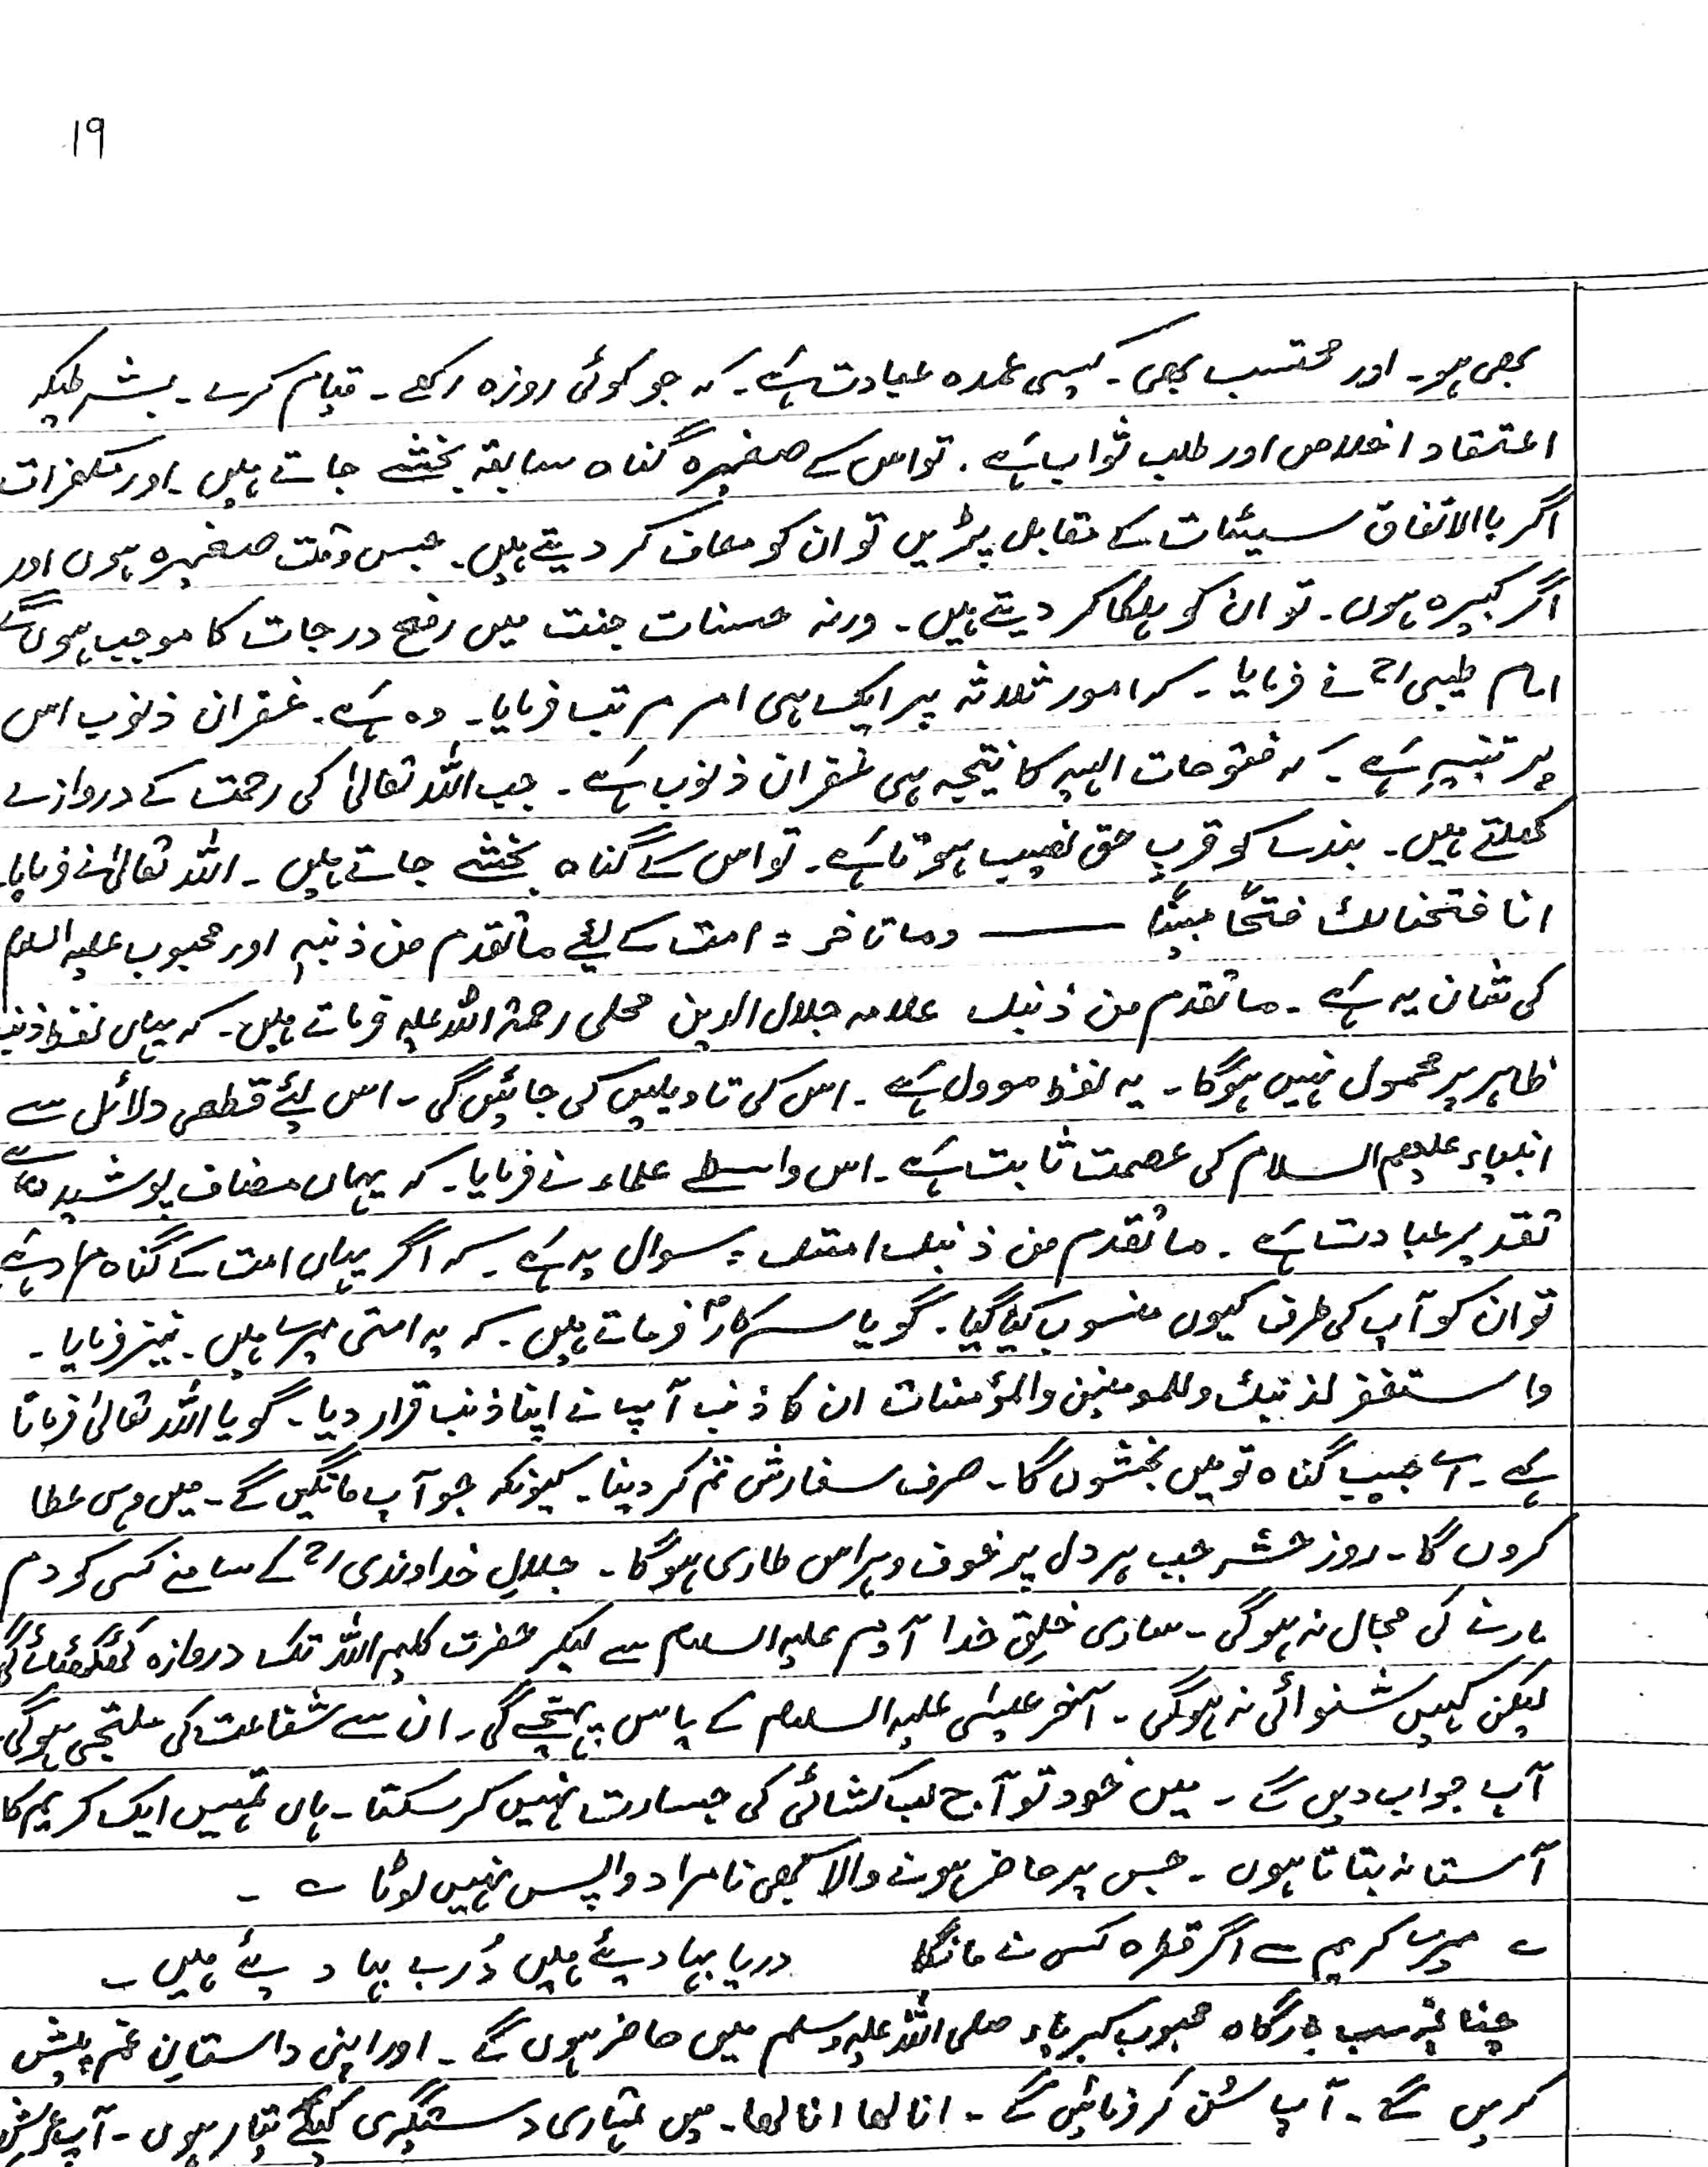 ۱۹
بھی ہو۔ اور محتسب بھی۔ کیسی عمدہ عبادت ہے۔ کہ جو کوئی روزہ رکھے۔ قیام کرے۔ بشرطیکہ
اعتقاد اخلاص اور طلب ثواب ہے۔ تو اس کے صغیرہ گناہ سابقہ بخشے جاتے ہیں۔ اور مکفرات
اگر باالاتفاق سیئات کے مقابل پڑیں تو ان کو معاف کر دیتے ہیں۔ جس وقت صغیرہ ہوں اور
اگر کبیرہ ہوں۔ تو ان کو ہلکا کر دیتے ہیں۔ ورنہ حسنات جنت میں رفع درجات کا موجب ہوں گے
امام طیبی رح نے فرمایا۔ کہ امور ثلاثہ پر ایک ہی امر مرتب فرمایا۔ وہ ہے۔ غفران ذنوب اس
پر تنبیہ ہے۔ کہ فتوحات الہیہ کا نتیجہ ہی غفران ذنوب ہے۔ جب اللہ تعالیٰ کی رحمت کے دروازے
کھلتے ہیں۔ بندے کو قربِ حق نصیب ہوتا ہے۔ تو اس کے گناہ بخشے جاتے ہیں۔ اللہ تعالیٰ نے فرمایا۔
انا فتحنا لک فتحًا مبینًا ——— وما تاخر = امت کے لیئے ما تقدم من ذنبہٖ اور محبوب علیہ السلام
کی شان یہ ہے۔ ما تقدم من ذنبک علامہ جلال الدین محلی رحمۃ اللہ علیہ فرماتے ہیں۔ کہ یہاں لفظ ذنب
ظاہر پر محمول نہیں ہوگا۔ یہ لفظ موول ہے۔ اس کی تاویلیں کی جائیں گی۔ اس لیئے قطعی دلائل سے
انبیاء علیھم السلام کی عصمت ثابت ہے۔ اس واسطے علماء نے فرمایا۔ کہ یہاں مضاف پوشیدہ ہے
تقدیر عبادت ہے۔ ما تقدم من ذنبک امتک = سوال یہ ہے۔ کہ اگر یہاں امت کے گناہ مراد ہے
تو ان کو آپ کی طرف کیوں منسوب کیا گیا۔ گویا سرکارؐ فرماتے ہیں۔ کہ یہ امتی میرے ہیں۔ نیز فرمایا۔
واستغفر لذنبک وللمومنین والمؤمنات ان کا ذنب آپ نے اپنا ذنب قرار دیا۔ گویا اللہ تعالیٰ فرماتا
ہے۔ اے حبیب گناہ تو میں بخشوں گا۔ صرف سفارش تم کر دینا۔ کیونکہ جو آپ مانگیں گے۔ میں وہی عطا
کروں گا۔ روز حشر جب ہر دل پر خوف و ہراس طاری ہوگا۔ جلالِ خداوندی رح کے سامنے کسی کو دم
مارنے کی مجال نہ ہوگی۔ ساری خلِق خدا آدم علیہ السلام سے لیکر حضرت کلیم اللہ تک دروازہ کھٹکھٹائے گی
لیکن کہیں شنوائی نہ ہوگی۔ آخر عیسٰی علیہ السلام کے پاس پہنچے گی۔ ان سے شفاعت کی ملتجی ہوگی
آپ جواب دیں گے۔ میں خود تو آج لب کشائی کی جسارت نہیں کر سکتا۔ ہاں تمہیں ایک کریم کا
آستانہ بتاتا ہوں۔ جس پر حاضر ہونے والا کبھی نامراد واپس نہیں لوٹا ے ۔
؎ میرے کریم سے اگر قطرہ کسی نے مانگا دریا بہا دیئے ہیں دُر بے بہا دیئے ہیں۔
چنانچہ سب بارگاہ محبوب کبریاء صلی اللہ علیہ وسلم میں حاضر ہوں گے۔ اور اپنی داستانِ غم پیش
کریں گے۔ آپ سُن کر فرمائیں گے۔ انا لھا انا لھا۔ میں تمہاری دستگیری کیلئے تیار ہوں۔ آپ عرش